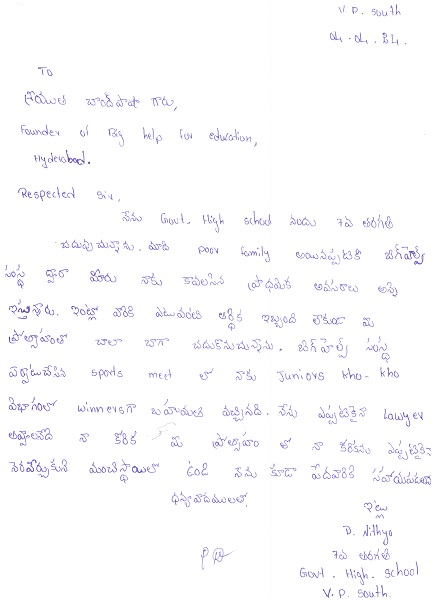 V. P. South
04-04-24.
To
శ్రీయుత చాంద్‌పాషా గారు,
Founder of Big help for education,
Hyderabad.
Respected Sir,
నేను Govt. High school నందు 7వ తరగతి
చదువుచున్నాను. మాది poor family అయినప్పటికీ బిగ్‌హెల్ప్
సంస్థ ద్వారా మీరు నాకు కావలసిన ప్రాధమిక అవసరాలు అవి
ఇస్తున్నారు. ఇంట్లో వారికి ఎటువంటి ఆర్థిక ఇబ్బంది లేకుండా మీ
ప్రోత్సాహంతో చాలా బాగా చదుకొనుచున్నాను. బిగ్‌హెల్ప్ సంస్థ
ఏర్పాటుచేసిన sports meet లో నాకు Juniors kho-kho
విభాగంలో winnersగా బహుమతి వచ్చినది. నేను ఎప్పటికైనా lawyer
అవ్వాలనేది నా కోరిక మీ ప్రోత్సాహం తో నా కోరికను ఎప్పటికైనా
నెరవేర్చుకుని మంచిస్థాయిలో ఉండి నేను కూడా పేదవారికి సహాయపడతాను
ధన్యవాదములతో,
ఇట్లు
D. Nithya
7వ తరగతి
Govt. High. School
V. P. South.